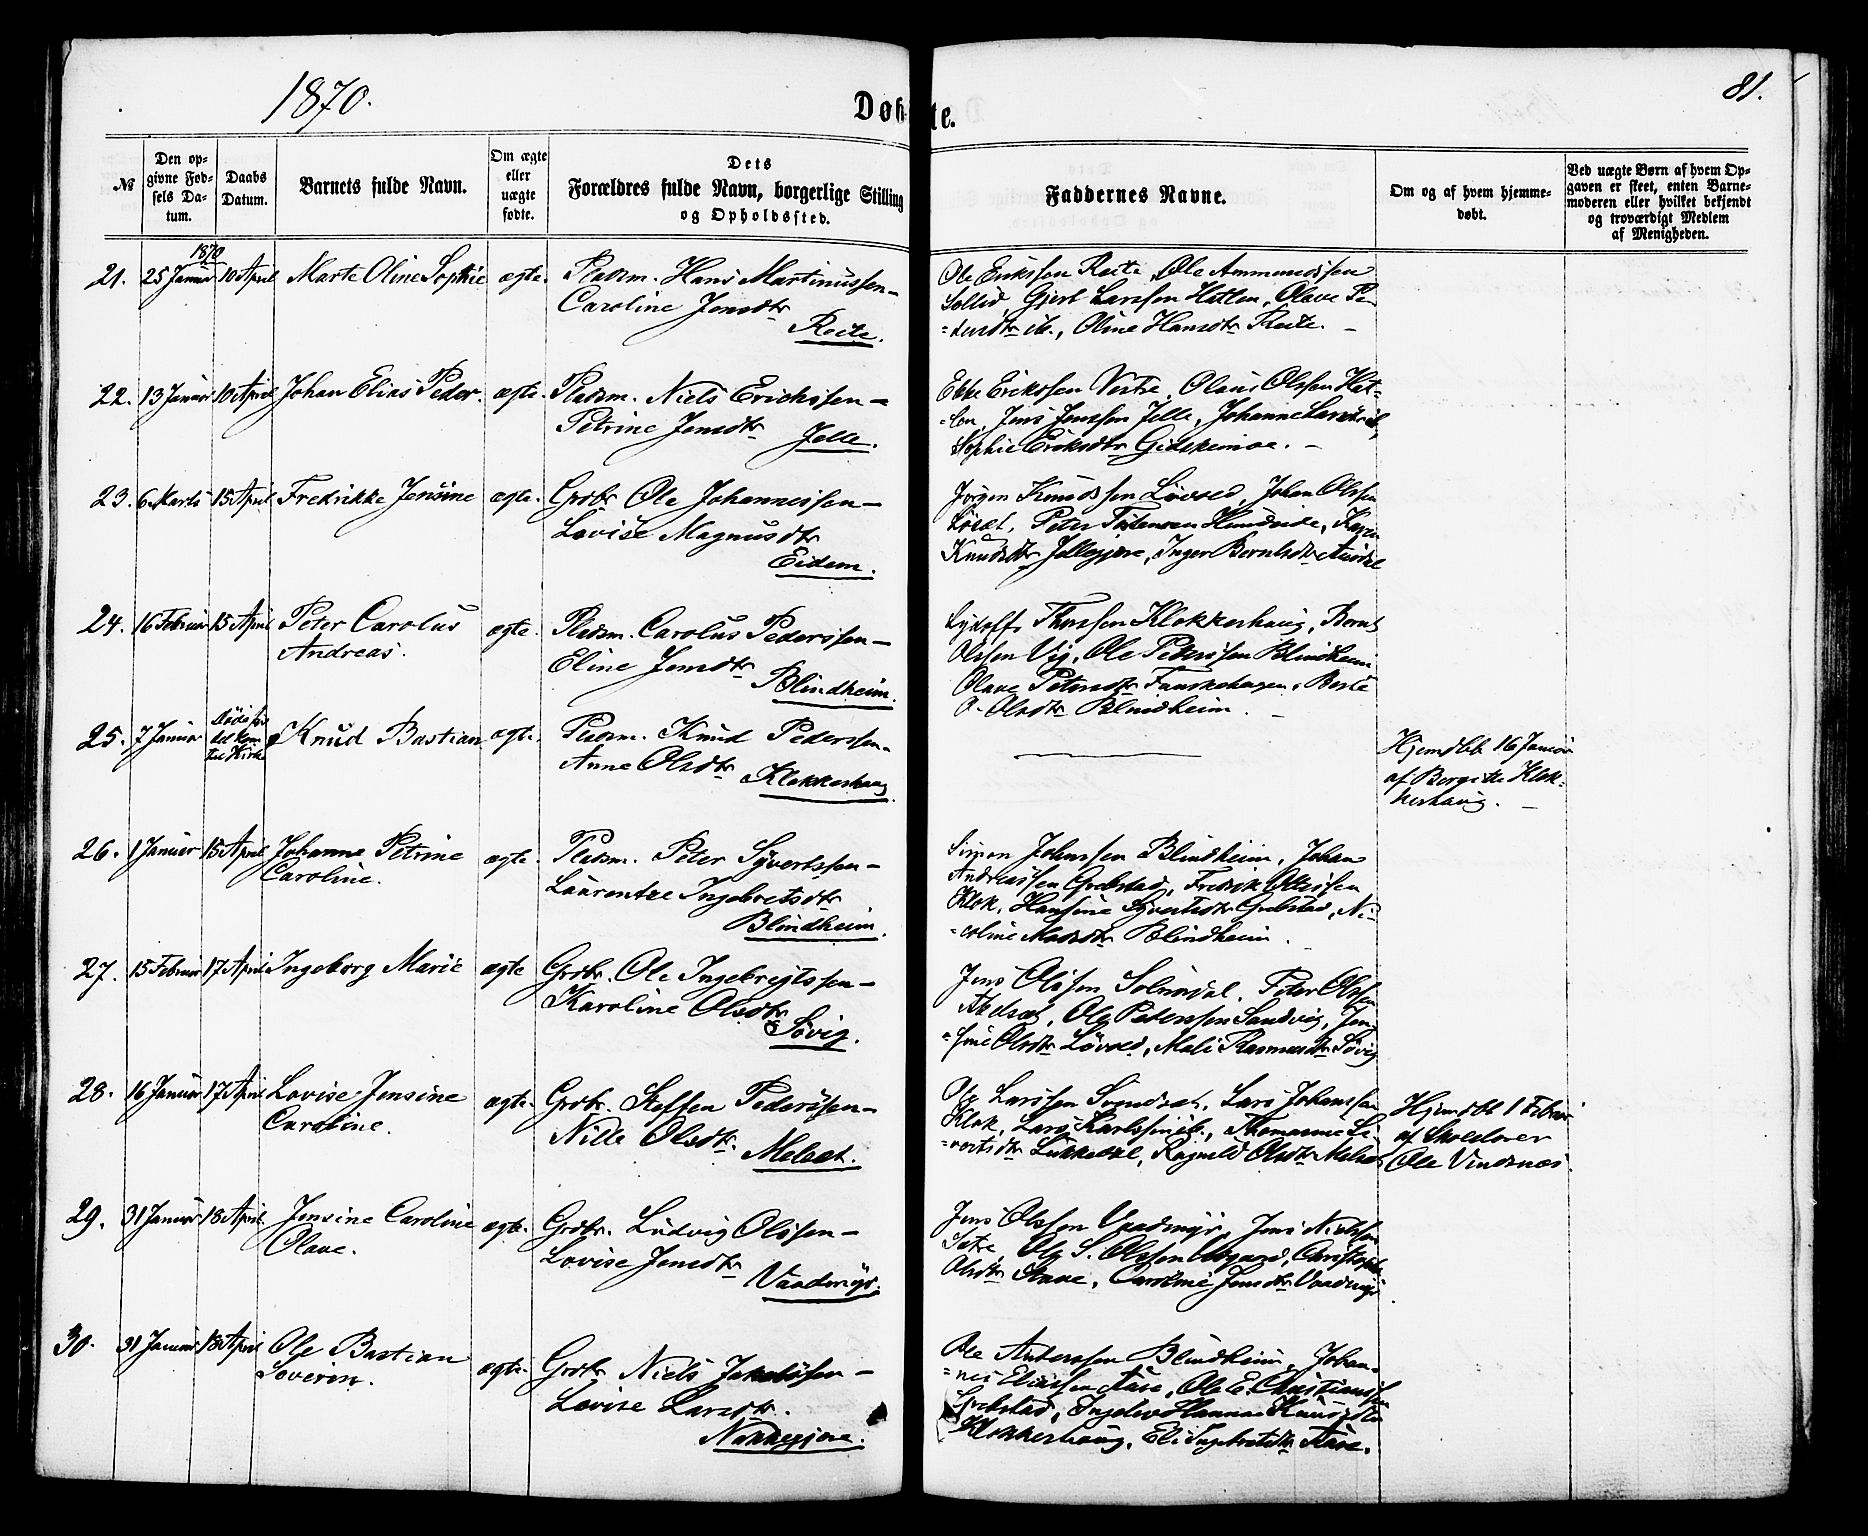 1870.
Døbte.
81.
№
Den op-
givne Fød-
sels Da-
tum.
Daabs
Datum.
Barnets fulde Navn.
Om ægte
eller
uægte
fødte.
Dets
Forældres fulde Navn, borgerlige Stilling
og Opholdssted.
Faddernes Navne.
Om og af hvem hjemme-
døbt.
Ved uægte Børn af hvem Op-
gaven er skeet, enten Barne-
moderen eller hvilket bekjendt
og troværdigt Medlem
af Menigheden.
1870
21. 25 Januar 10 April Marte Oline Sophie ægte. Pladsm. Hans Martinussen -
Caroline Jensdtr
Reite.
Ole Erikssen Reite, Ole Ammundssen
Gjert Larssen Hatlen, Olave Pe-
=tersdtr ib., Oline Hansdtr Reite. -
22. 13 Januar 10 April Johan Elias Peder. ægte. Pladsm. Niels Erichssen -
Petrine Jensdtr Jelle.
Erikssen Vestre, Olaus Olssen Hat-
=len, Jens Jenssen Jelle, Johanne Larsdtr ib,
Sophie Eriksdtr Gidskemoe. -
23. 6 Marts 15 April Fredrikke Jensine ægte. Grdbr Ole Johannessen -
Lovise Magnusdtr
Eidem.
Jørgen Knudssen Løvold, Johan Olssen
Peter Humdeide, Karen
Knudsdtr Jellegjære, Inger Berntsdtr
24. 16 Februar 15 April Peter Carolus
Andreas.
ægte. Pladsm. Carolus Pederssen -
Eline Jensdtr
Blindheim.
Klokkerhaug, Bernt
Olssen Vig, Ole Pederssen Blindheim
Olave Petersdtr
Olsdtr Blindheim. -
25. 7 Januar Døde før
det kom
til Kirke
Knud Bastian ægte. Pladsm. Knud Pederssen -
Anne Olsdtr Klokkerhaug.
Hjemdbt 16 Januar
af Bergitte Klok-
kerhaug. -
26. 1 Januar 15 April Johanne Petrine
Caroline.
ægte. Pladsm. Peter Syvertssen -
Laurentze Ingebretsdtr
Blindheim.
Simon Johnssen Blindheim, Johan
Andreassen Grebstad, Fredrik Olssen
Klok, Hansine Syvertsdtr Grebstad, Ni-
=coline Madsdtr Blindheim.
27. 15 Februar 17 April Ingeborg Marie ægte Grdbr. Ole Ingebrigtssen -
Karoline Olsdtr
Søvig.
Jens Olssen Solnørdal, Peter Olssen
Ole Peterssen Sandvig, Jen-
=sine Olsdtr Løvold, Mali Rasmusdtr Søvig
28. 16 Januar 17 April Lovise Jensine
Caroline.
ægte. Grdbr. Steffen Pederssen -
Nille Olsdtr. Melsæt.
Ole Larssen Lars Johanssen
Klok, Lars Karlssen ib., Thomasine Si-
=vertsdtr Ragnild Olsdtr Melsæt
Hjemdbt 1 Februar
af Skolelærer
Ole Vindsnæs.
29. 31 Januar 18 April Jensine Caroline
Olave.
ægte. Grdbr. Ludvig Olssen -
Lovise Jensdtr
Vaadmyr.
Jens Olssen Vaadmyr, Jens Nielssen
Sætre, Ole S. Olssen
Olsdtr Caroline Jensdtr Vaadmyr
30. 31 Januar 18 April Ole Bastian
Severin.
ægte. Grdbr Niels Jakobssen -
Lovise Larsdtr.
Nakkegjære.
Ole Anderssen Blindheim, Johan-
=nes Eliassen Aase, Ole E. Christianssen
Grebstad, Hanna Knudsdtr
Klokkerhaug, Eli Ingebretsdtr Aase.